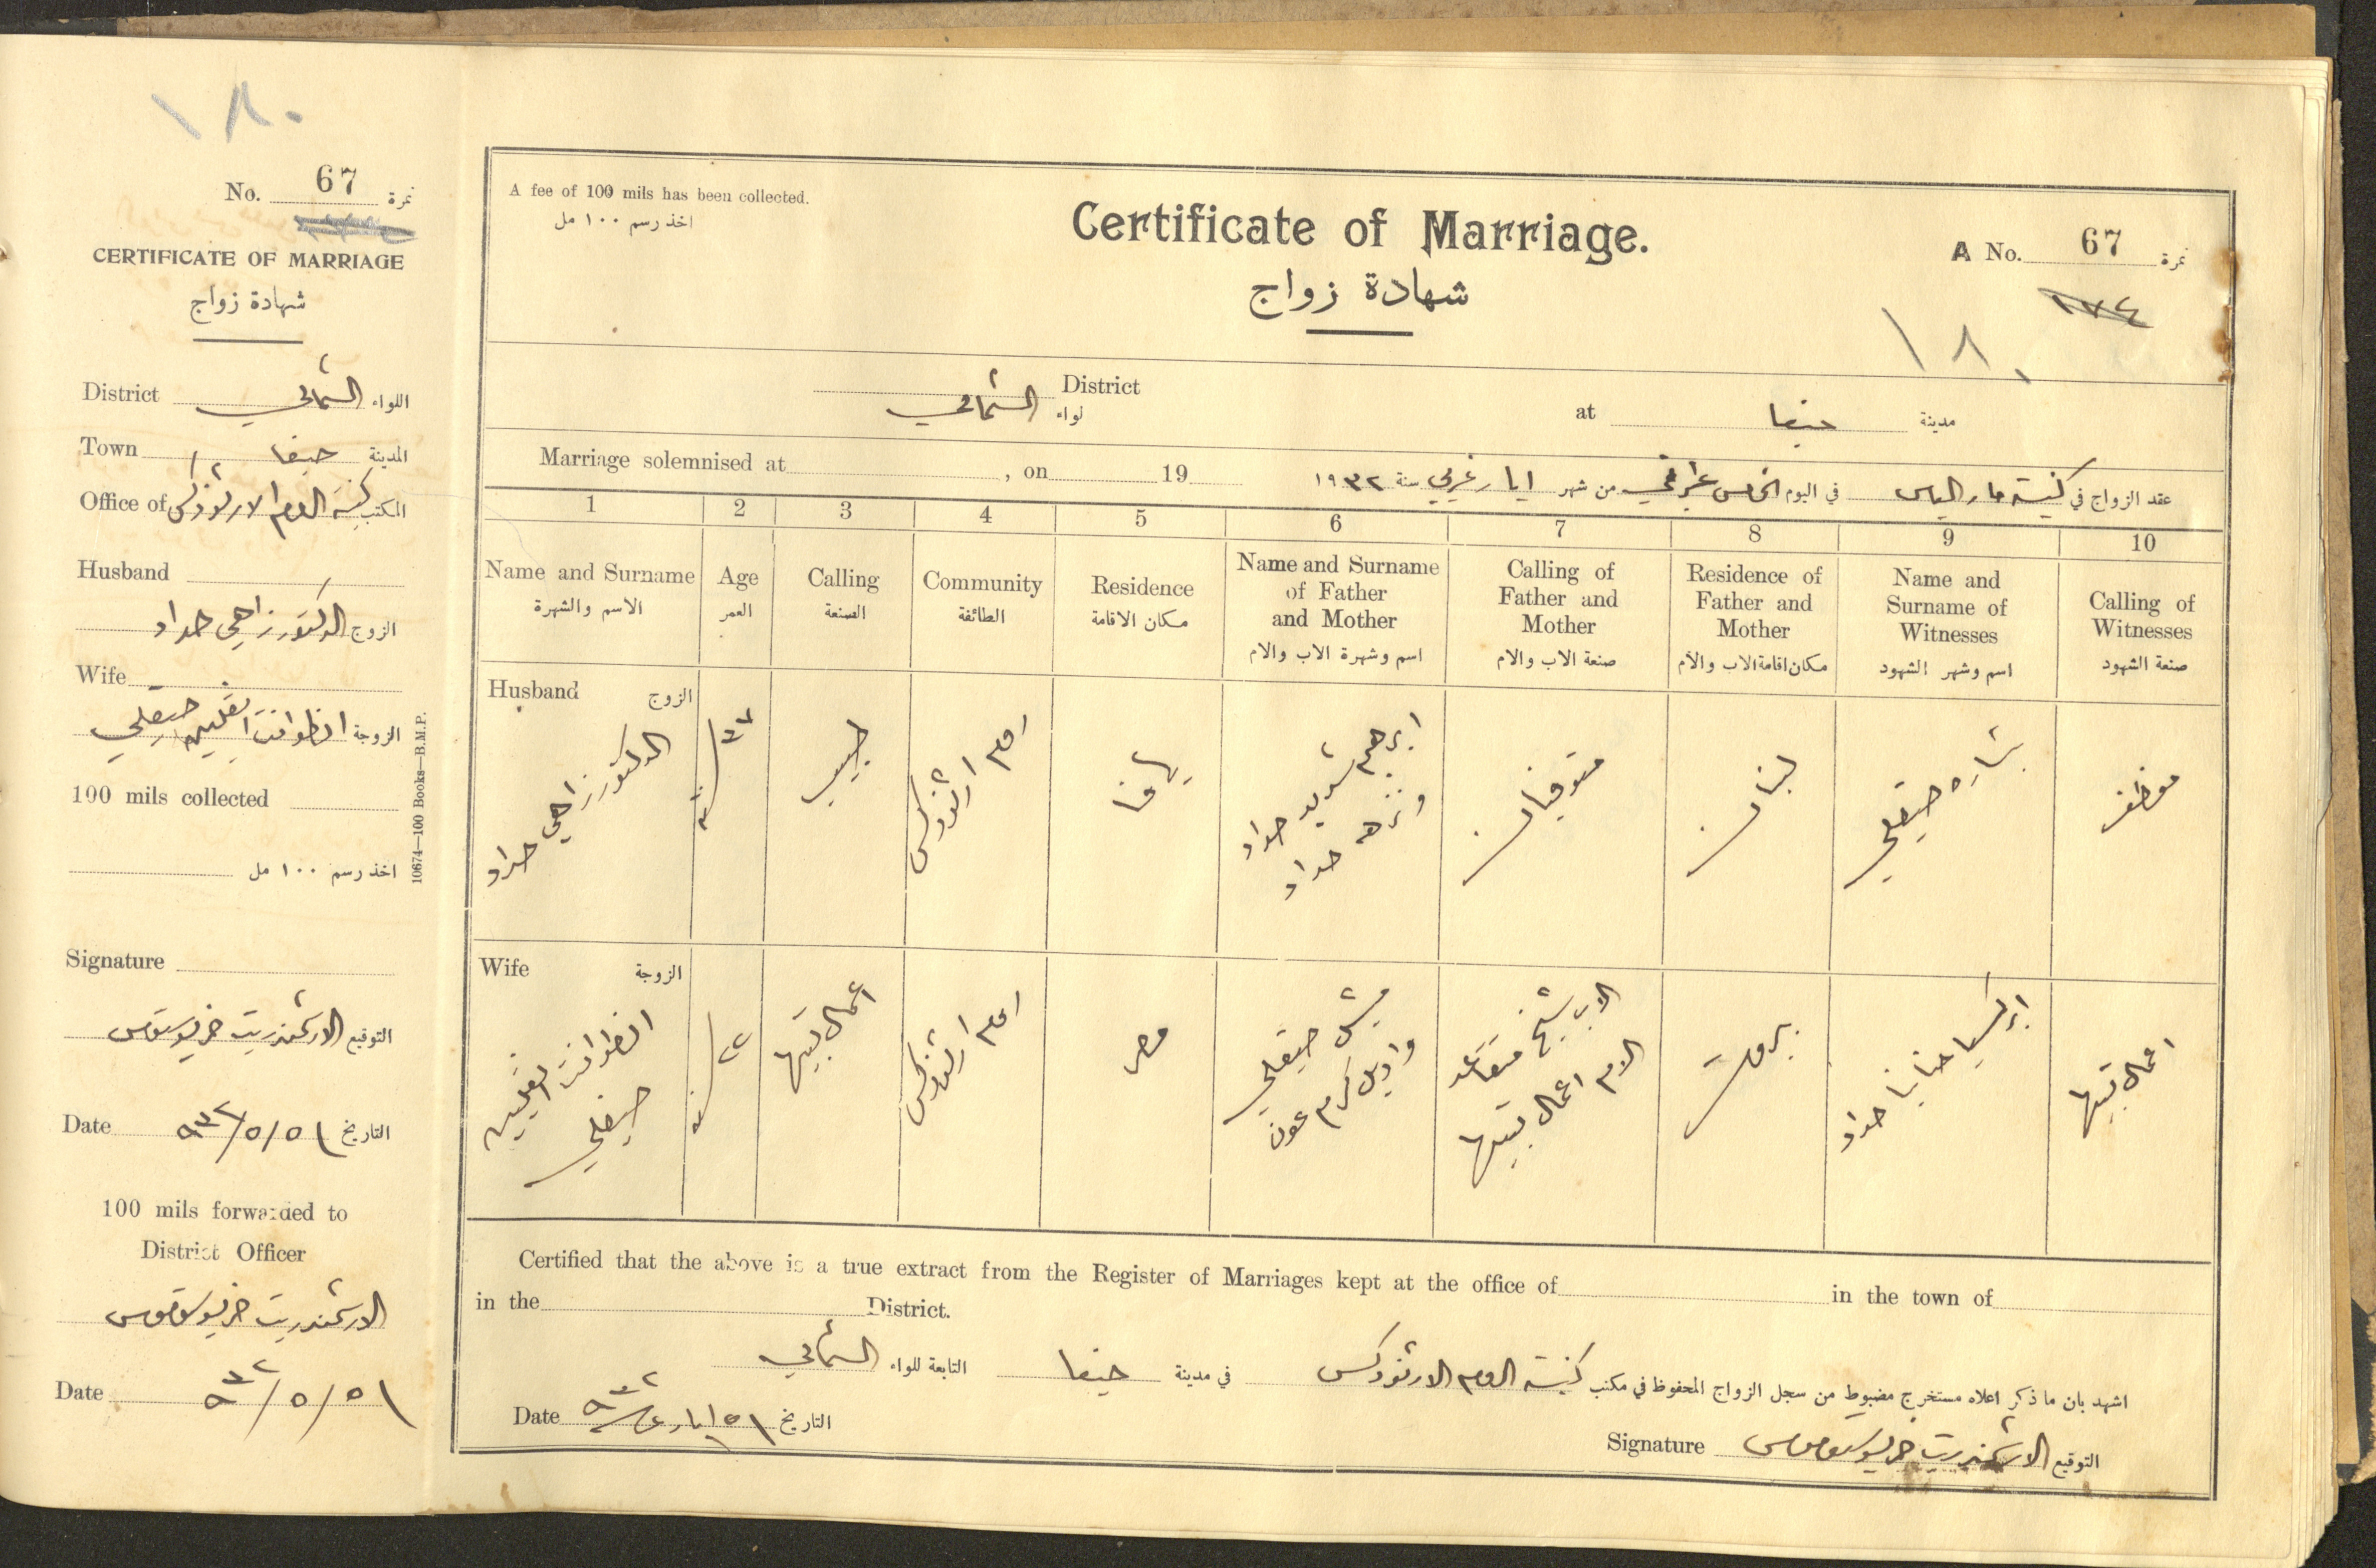 ١٨٠
No. 67 نمرة
CERTIFICATE OF MARRIAGE
شهادة زواج
District الشمالي اللواء
Town حيفا المدينة
Office of كنيسة الروم الارثوذكس المكتب
Husband
الزوج الدكتور زاهي حداد
Wife
الزوجة انطوانت انجلين صيقلي
100 mils collected
اخذ رسم ١٠٠ مل
Signature
التوقيع الارشمندريت
Date ١٥/٥/٩٣٢ التاريخ
100 mils forwarded to
District Officer
الارشمندريت
Date ١٥/٥/٩٣٢
10674—100 Books—B.M.P.
A fee of 100 mils has been collected.
اخذ رسم ١٠٠ مل
Certificate of Marriage.
شهادة زواج
A No. 67 نمرة
١٧٤
١٨٠
District
لواء الشمالي
at حيفا مدينة
Marriage solemnised at , on 19
عقد الزواج في كنيسة مار الياس في اليوم الخامس عشر من شهر ايار غربي سنة ١٩٣٢
1 2 3 4 5 6 7 8 9 10
Name and Surname
الاسم والشهرة
Age
العمر
Calling
الصنعة
Community
الطائفة
Residence
مكان الاقامة
Name and Surname
of Father
and Mother
اسم وشهرة الاب والام
Calling of
Father and
Mother
صنعة الاب والام
Residence of
Father and
Mother
مكان اقامة الاب والام
Name and
Surname of
Witnesses
اسم وشهر الشهود
Calling of
Witnesses
صنعة الشهود
Husband الزوج
الدكتور زاهي حداد
سنة
طبيب
روم ارثوذكس
يافا
ابرهيم حداد
ونزهه حداد
متوفيان
لبنان
بشاره صيقلي
موظف
Wife الزوجة
انطوانت انجلين
صيقلي
٢٢ سنة
اعمال بيتها
روم ارثوذكس
مصر
ميشل صيقلي
واديل كرم عون
الاب شيخ متقاعد
الام اعمال بيتها
بيروت
حنانيا حداد
اعمال بيتها
Certified that the above is a true extract from the Register of Marriages kept at the office of in the town of
in the District.
اشهد بان ما ذكر اعلاه مستخرج مضبوط من سجل الزواج المحفوظ في مكتب كنيسة الروم الارثوذكس في مدينة حيفا التابعة للواء الشمالي
Date ١٥ ايار ٩٣٢ التاريخ
Signature الارشمندريت التوقيع